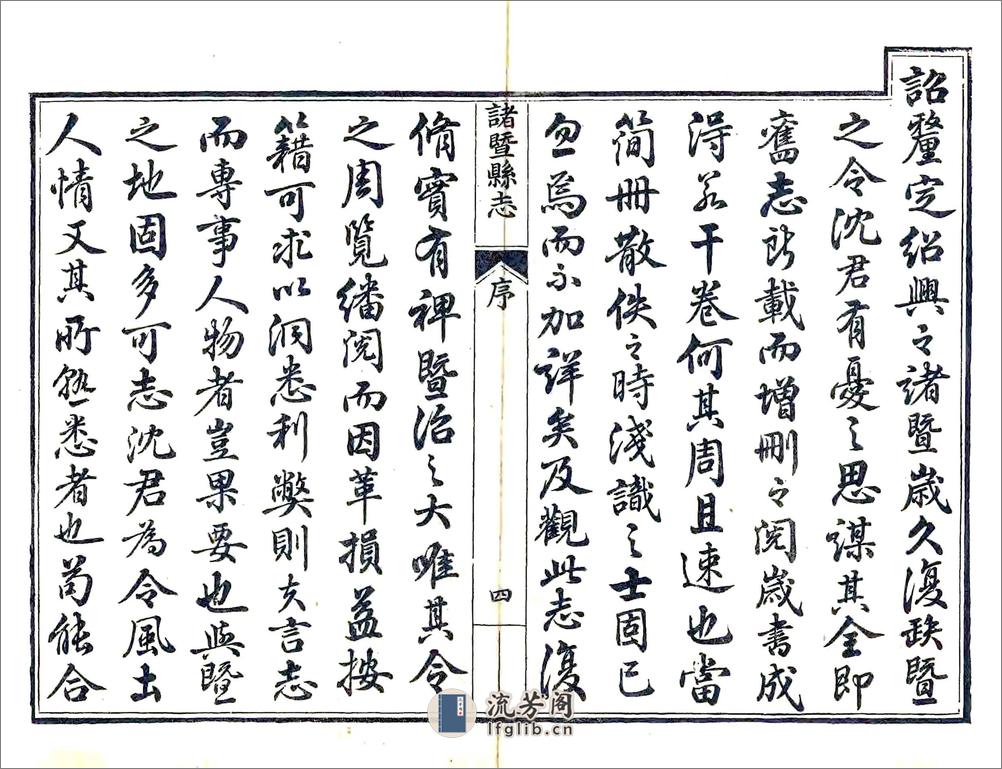 詔釐定紹興之諸暨歲久復缺暨
之令沈君有憂之思謀其全即
舊志所載而增刪之閱歲書成
得若干卷何其周且速也當
簡冊散佚之時淺識之士固已
忽焉而不加詳矣及觀此志復
諸暨縣志
序
四
脩實有裨暨治之大唯其令
之周覽繙閱而因革損益按
籍可求以洞悉利弊則夫言志
而專事人物者豈果要也與暨
之地固多可志沈君為令風土
人情又其所熟悉者也苟能合
流芳阁
lfglib.cn